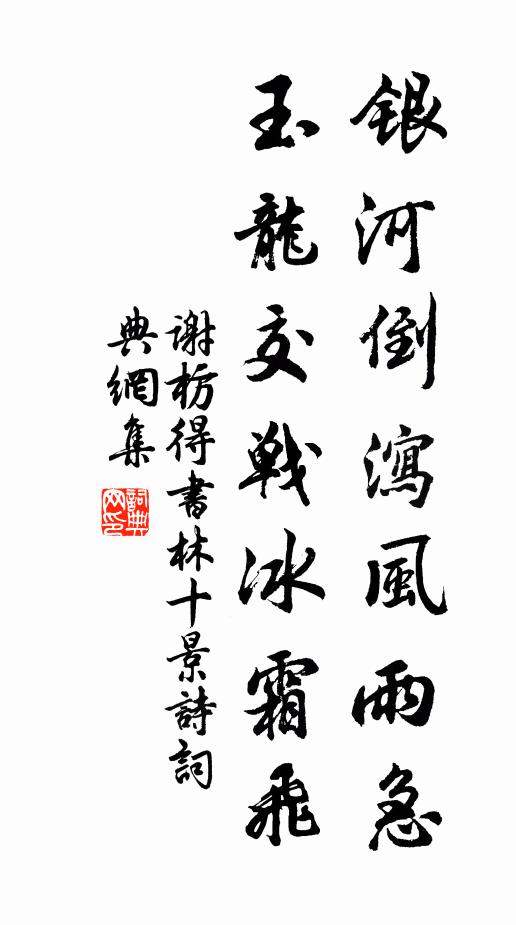 銀河倒瀉風雨急
玉龍交戰冰霜飛
謝枋得書林十景詩詞
典網集
詞典網印